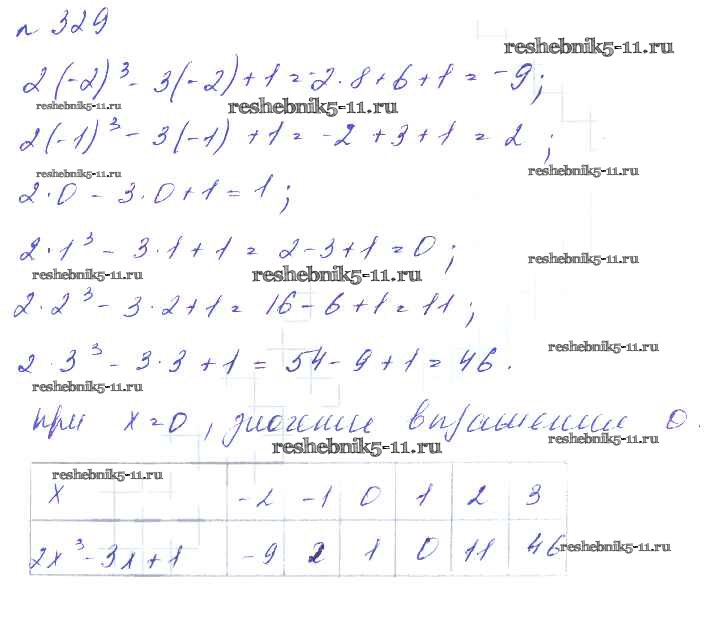 № 329
reshebnik5-11.ru
2(-2)³ - 3(-2) + 1 = -2·8 + 6 + 1 = -9;
reshebnik5-11.ru reshebnik5-11.ru
2(-1)³ - 3(-1) + 1 = -2 + 3 + 1 = 2;
reshebnik5-11.ru reshebnik5-11.ru
2·0 - 3·0 + 1 = 1;
2·1³ - 3·1 + 1 = 2 - 3 + 1 = 0;
reshebnik5-11.ru reshebnik5-11.ru reshebnik5-11.ru
2·2³ - 3·2 + 1 = 16 - 6 + 1 = 11;
reshebnik5-11.ru
2·3³ - 3·3 + 1 = 54 - 9 + 1 = 46.
reshebnik5-11.ru
при x = 0, значение выражения 0.
reshebnik5-11.ru reshebnik5-11.ru
reshebnik5-11.ru
x -2 -1 0 1 2 3
2x³ - 3x + 1 -9 2 1 0 11 46
reshebnik5-11.ru